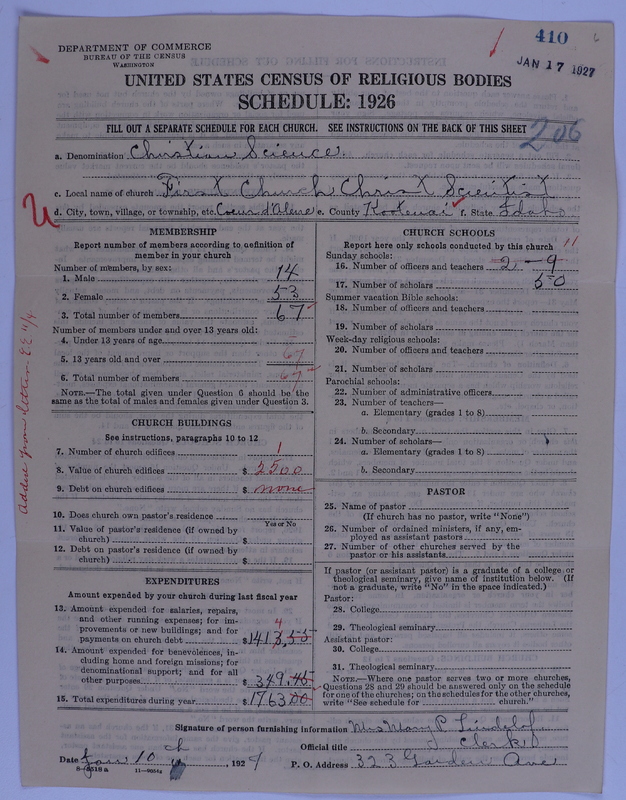 410
6
JAN 17 1927
DEPARTMENT OF COMMERCE
BUREAU OF THE CENSUS
WASHINGTON
UNITED STATES CENSUS OF RELIGIOUS BODIES
SCHEDULE: 1926
FILL OUT A SEPARATE SCHEDULE FOR EACH CHURCH. SEE INSTRUCTIONS ON THE BACK OF THIS SHEET
206
a. Denomination Christian Science.
c. Local name of church First Church Christ Scientist
d. City, town, village, or township, etc. Coeur d'Alene e. County Kootenai f. State Idaho
MEMBERSHIP
Report number of members according to definition of member in your church
Number of members, by sex:
1. Male 14
2. Female 53
3. Total number of members 67
Number of members under and over 13 years old:
4. Under 13 years of age –
5. 13 years old and over 67
6. Total number of members 67
NOTE.—The total given under Question 6 should be the same as the total of males and females given under Question 3.
CHURCH BUILDINGS
See instructions, paragraphs 10 to 12
7. Number of church edifices 1
8. Value of church edifices $ 2500
9. Debt on church edifices $ none
10. Does church own pastor's residence
Yes or No
11. Value of pastor's residence (if owned by church) $
12. Debt on pastor's residence (if owned by church) $
EXPENDITURES
Amount expended by your church during last fiscal year
13. Amount expended for salaries, repairs, and other running expenses; for improvements or new buildings; and for payments on church debt $ 1413,55
4
14. Amount expended for benevolences, including home and foreign missions; for denominational support; and for all other purposes $ 349.45
15. Total expenditures during year $ 1763 00
CHURCH SCHOOLS
Report here only schools conducted by this church
11
Sunday schools:
16. Number of officers and teachers 2 – 9
17. Number of scholars 50
Summer vacation Bible schools:
18. Number of officers and teachers
19. Number of scholars
Week-day religious schools:
20. Number of officers and teachers
21. Number of scholars
Parochial schools:
22. Number of administrative officers
23. Number of teachers—
a. Elementary (grades 1 to 8)
b. Secondary
24. Number of scholars—
a. Elementary (grades 1 to 8)
b. Secondary
PASTOR
25. Name of pastor
(If church has no pastor, write "None")
26. Number of ordained ministers, if any, employed as assistant pastors
27. Number of other churches served by the pastor or his assistants
If pastor (or assistant pastor) is a graduate of a college or theological seminary, give name of institution below. (If not a graduate, write "No" in the space indicated.)
Pastor:
28. College
29. Theological seminary
Assistant pastor:
30. College
31. Theological seminary
NOTE.—Where one pastor serves two or more churches, Questions 28 and 29 should be answered only on the schedule for one of the churches; on the schedules for the other churches, write "See schedule for church."
Signature of person furnishing information Mrs Mary P
Official title Clerk
Date Jan 10 , 1927
P. O. Address 323 Garden Ave
8—5518 a 11—9054a
Added from letter EE 11/4